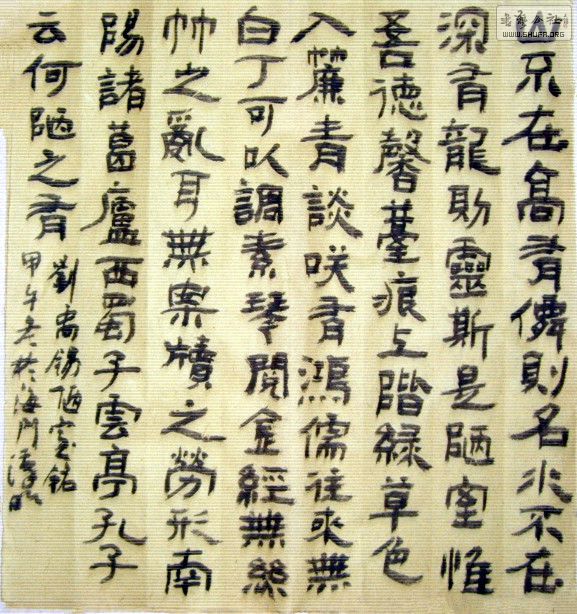 山不在高有僊則名水不在
深有龍則靈斯是陋室惟
吾德馨薹痕上階綠草色
入簾青談咲有鴻儒往來無
白丁可以調素琴閱金經無絲
竹之亂耳無案牘之勞形南
陽諸葛廬西蜀子雲亭孔子
云何陋之有
劉禹錫陋室銘
甲午冬於海門
書法公社
WWW.SHUFA.ORG